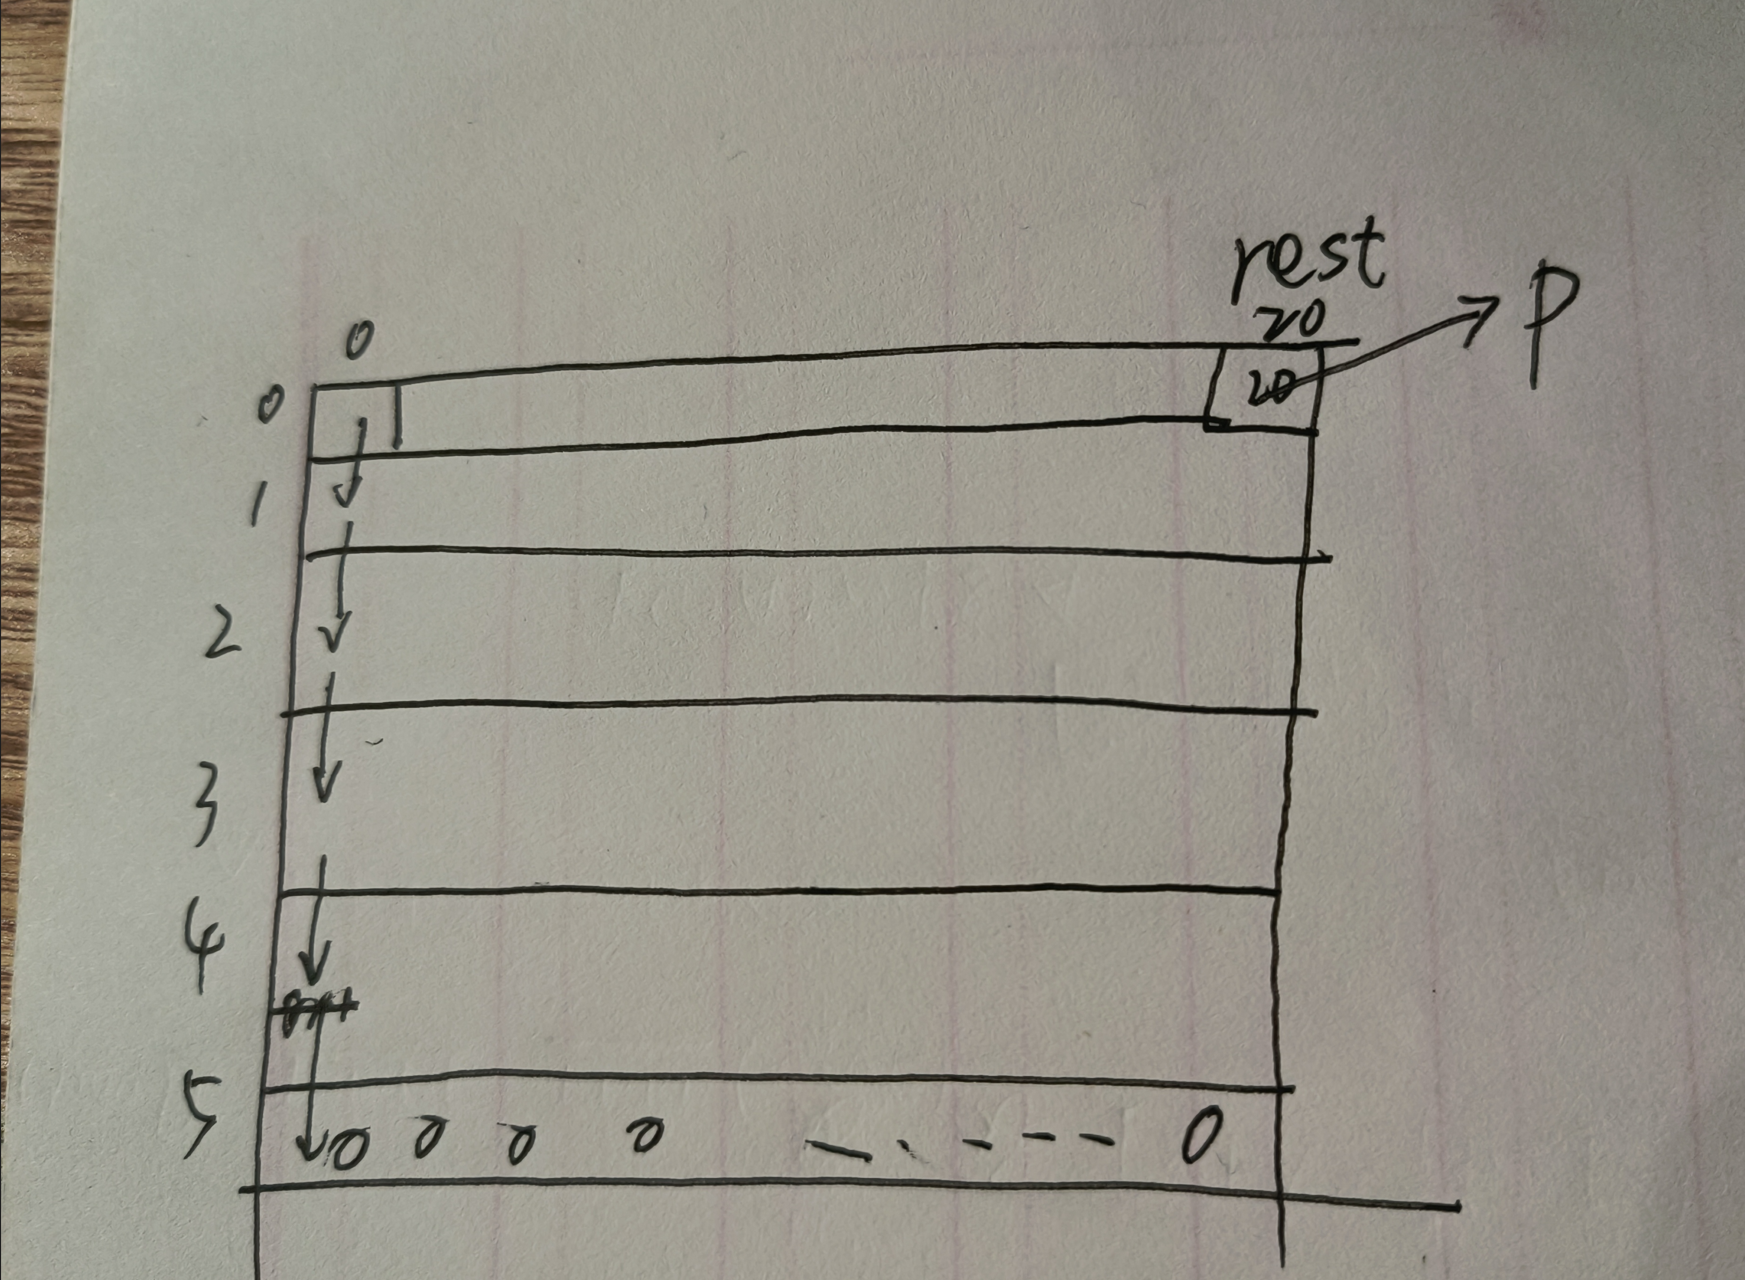 rest
0 20 P
0 20
1
2
3
4
5 0 0 0 0 - - - - - 0